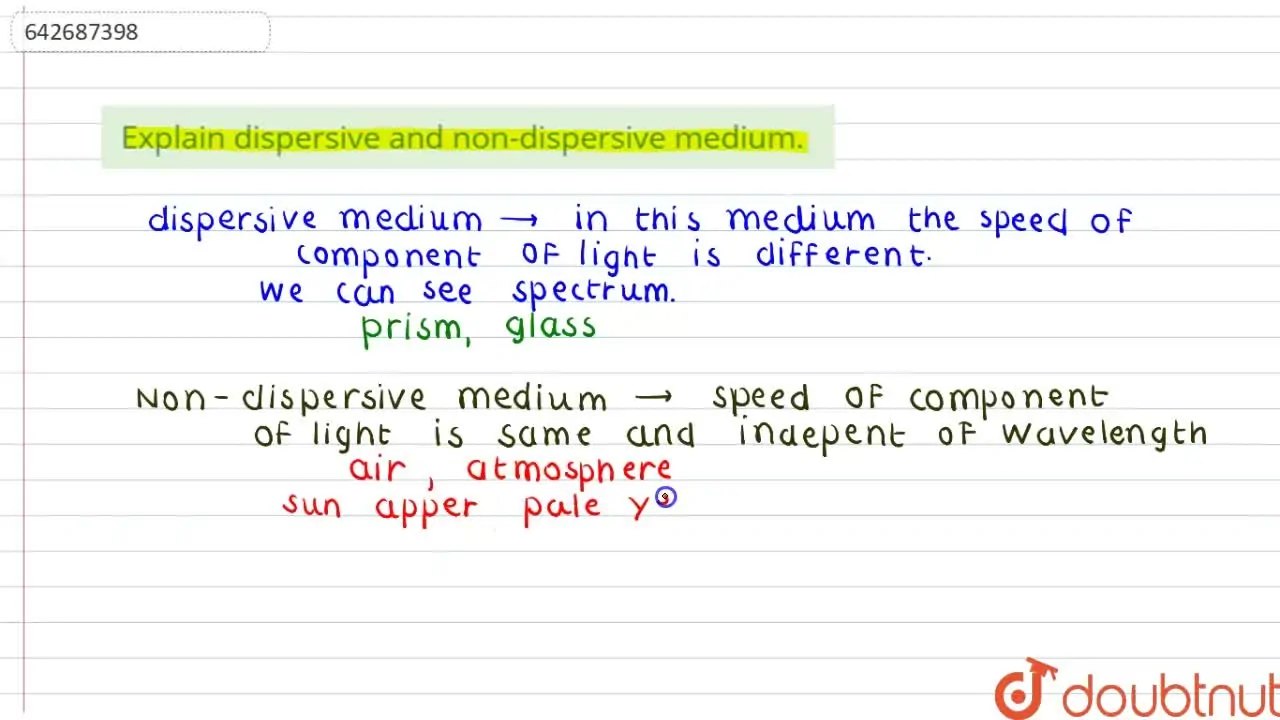 642687398
Explain dispersive and non-dispersive medium.
dispersive medium → in this medium the speed of
component of light is different.
we can see spectrum.
prism, glass
Non-dispersive medium → speed of component
of light is same and indepent of wavelength
air, atmosphere
sun apper pale y
doubtnut